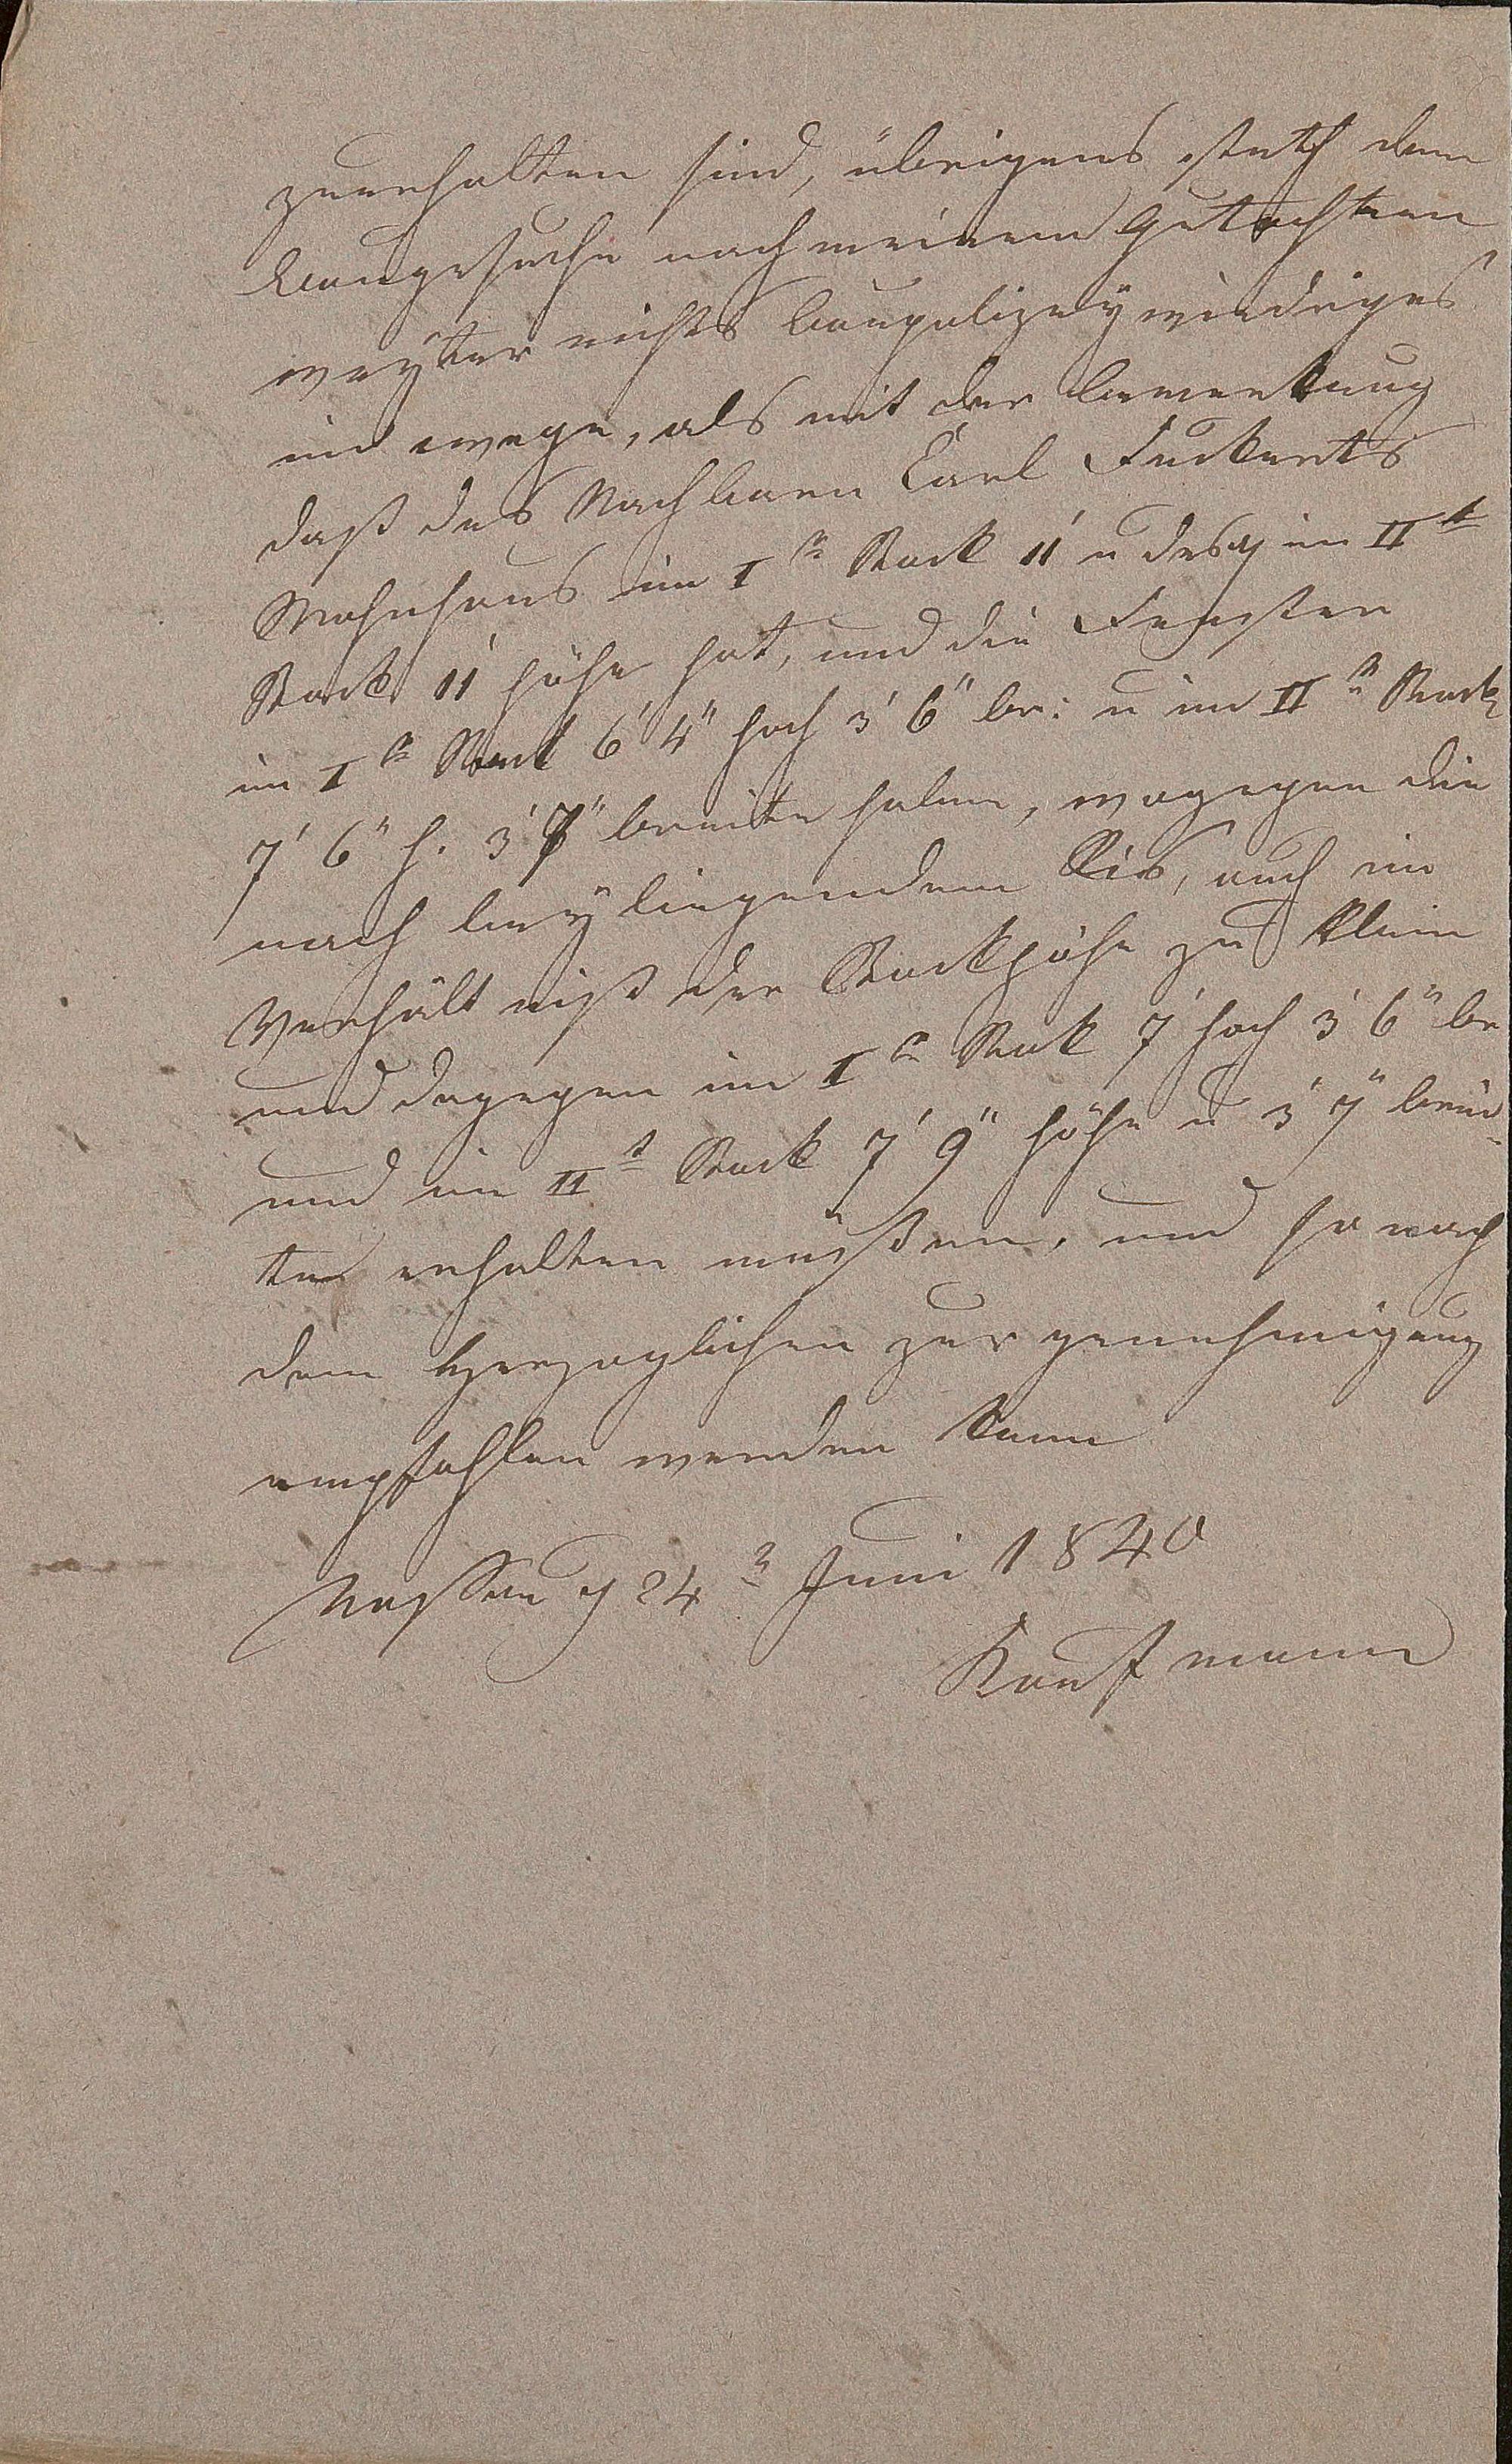 zuerhalten sind, übrigens steth dem
Baugesuche nach meinem Gutachten
weyter nichts baupolizeÿ wiedriges
im wege, als mit der bemerkung
daß des Nachbaren Carl Fuckerts
Wohnhaus im I <sup>n</sup> Stock 11' u desgl im II <sup>t</sup>
Stock 11' höhe hat, und die Fenster
im I <sup>n</sup> Stock 6' 4" hoch 3' 6" br: u im II <sup>n</sup> Stock
7' 6" h. 3' 7" breite haben, wogegen die
nach beÿliegendem Ris, auch im
Verhältniß der Stockhöhe zu klein
und dagegen im I <sup>n</sup> Stock 7' hoch 3' 6" br
und im II <sup>t</sup> Stock 7' 9" höhe u 3' 7" brei-
te erhalten müßen, und so nach
dem Herzoglichen zur genehmigung
empfohlen werden kann
Nassau d 24 Juni 1840
Kaufmann